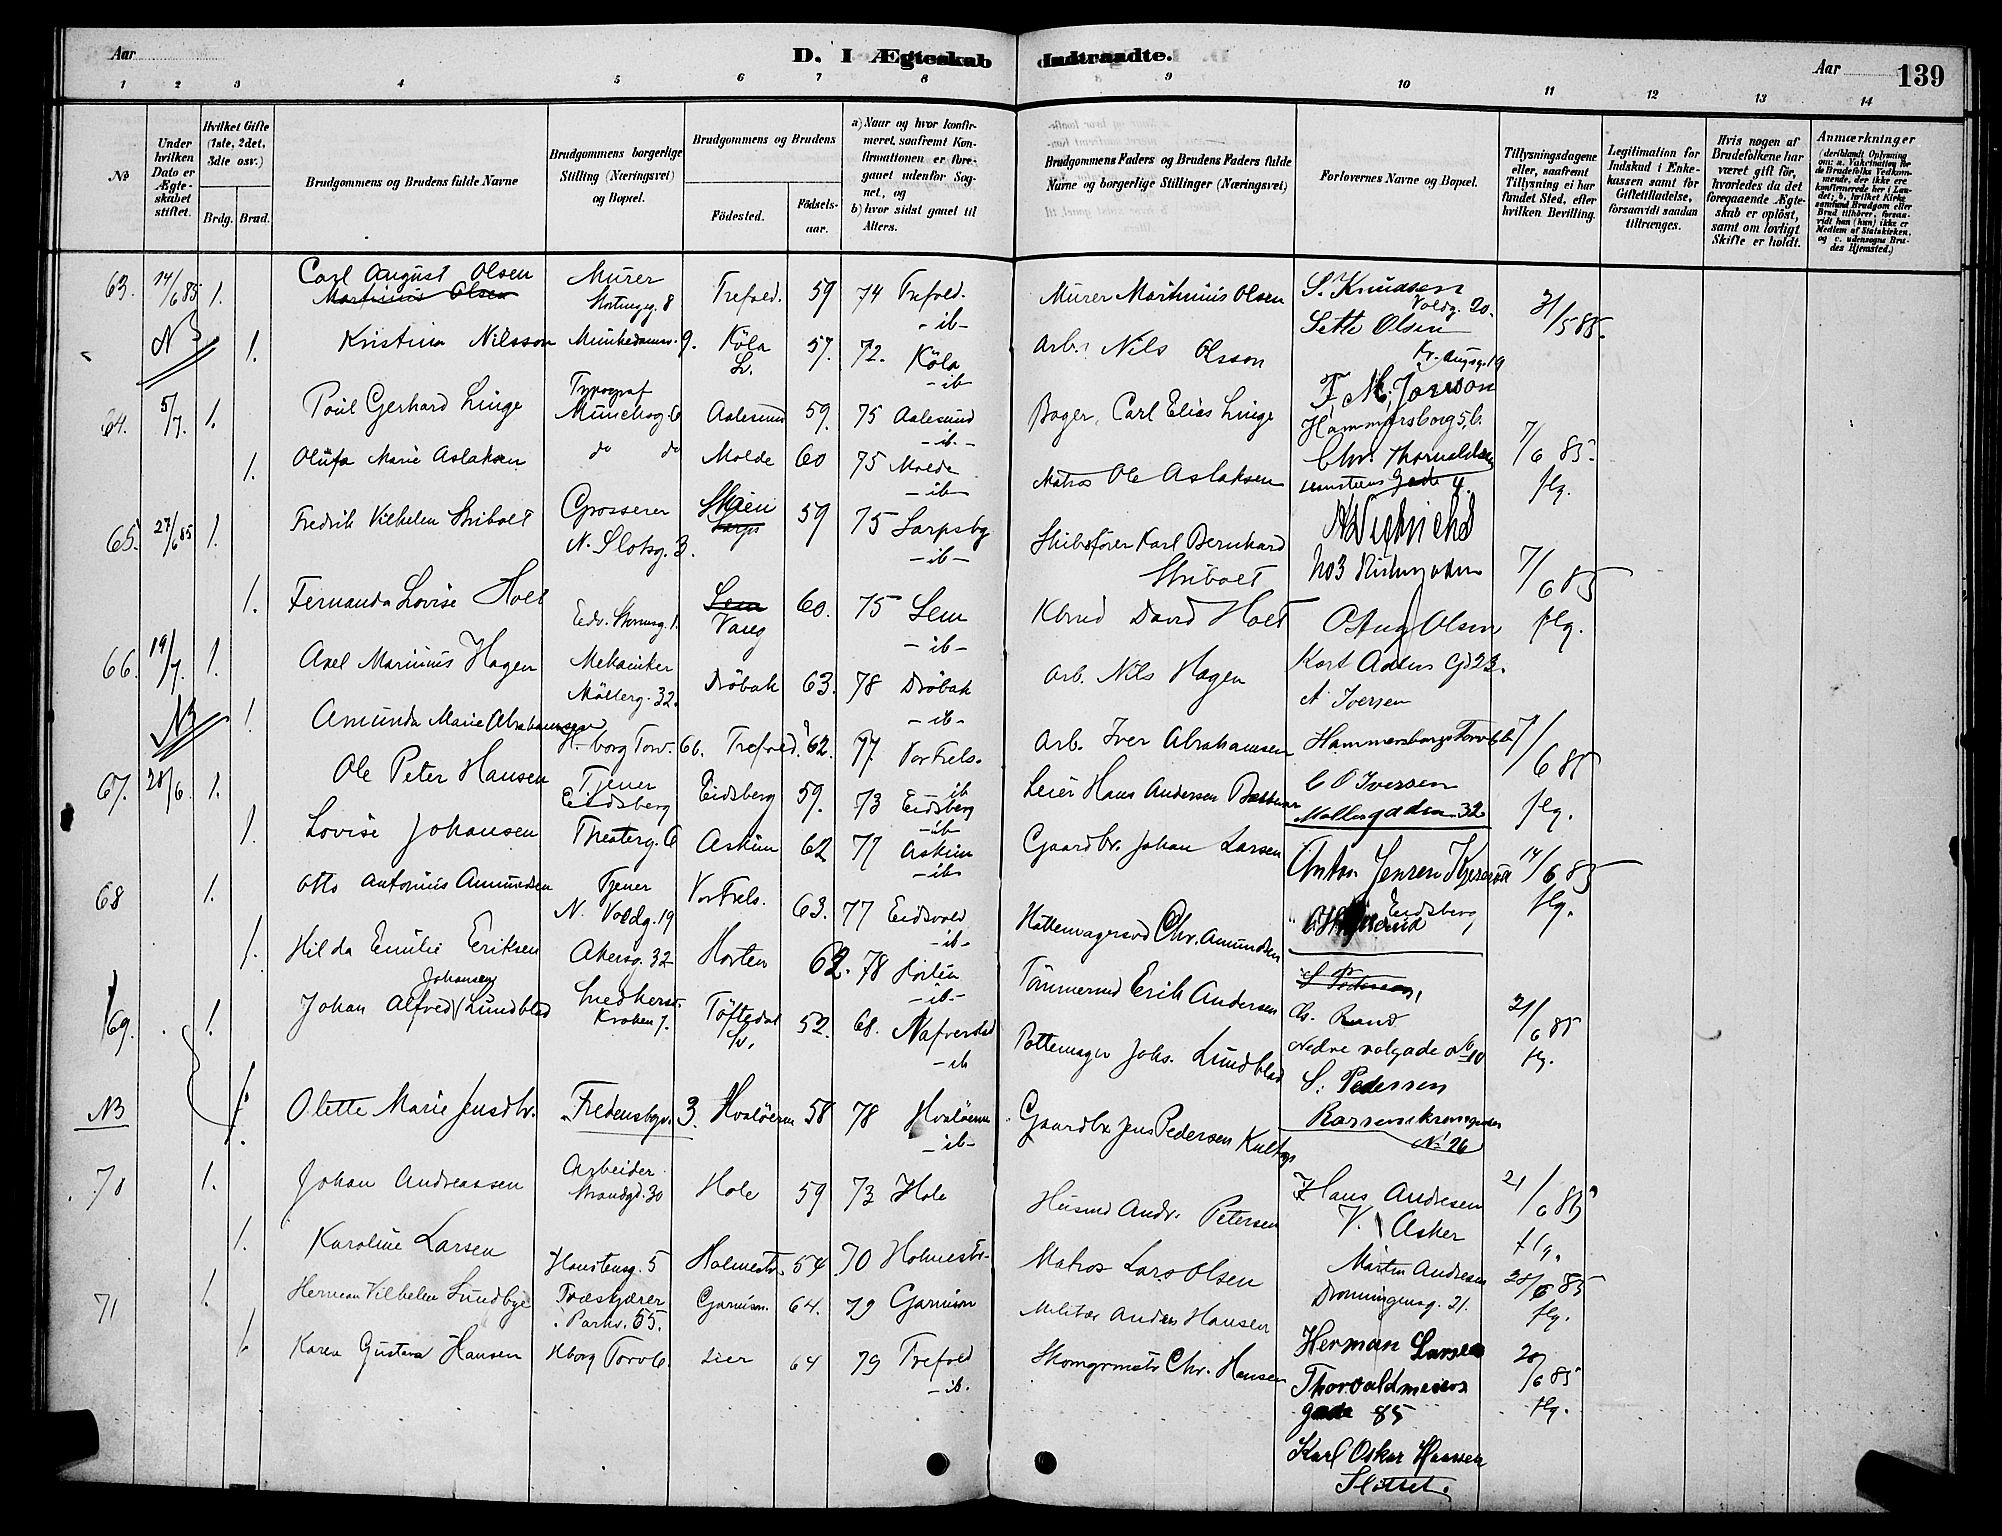 Aar D. I Ægteskab Indtraadte. Aar 139
1 2 3 4 5 6 7 8 9 10 11 12 13 14
No
Under hvilken Dato er Ægteskabet stiftet.
Hvilket Gifte (1ste, 2det, 3die osv.)
Brdg. Brud.
Brudgommens og Brudens fulde Navne
Brudgommens borgerlige Stilling (Næringsvei) og Bopæl.
Brudgommens og Brudens
Fødested. Fødselsaar.
a) Naar og hvor konfirmeret, saafremt Konfirmationen er foregaaet udenfor Sognet, og
b) hvor sidst gaaet til Alters.
Brudgommens Faders og Brudens Faders fulde Navne og borgerlige Stillinger (Næringsvei)
Forlovernes Navne og Bopæl.
Tillysningsdagene eller, saafremt Tillysning ei har fundet Sted, efter hvilken Bevilling.
Legitimation for Indskud i Enkekassen samt for Giftetilladelse, forsaavidt saadan tiltrænges.
Hvis nogen af Brudefolkene har været gift før, hvorledes da det foregaaende Ægteskab er opløst, samt om lovligt Skifte er holdt.
Anmærkninger
(deriblandt Oplysning om: a. Vakcination for de Brudefolks Vedkommende, der ikke ere konfirmerede her i Landet; b. hvilket Kirkesamfund Brudgom eller Brud tilhører, forsaavidt han (hun) ikke er Medlem af Statskirken, og c. udensogns Brudes Hjemsted.)
63. 14/6 85 1. Carl August Olsen Murer Trefold. 59 74 Trefold. Murer Martinius Olsen S. Knudsen 31/5 85.
Martinius Olsen Stortingg. 8 -ib- Voldg. 20.
NB 1. Kristina Nilsson Munkedamsv. 9. Köla 57. 72. Köla Arb. Nils Olsson Sette Olsen
-ib-
64. 5/7. 1. Poul Gerhard Linge Typograf Aalesund 59. 75 Aalesund Bager, Carl Elias Linge 7/6 85.
Munchsg. 6 -ib- Hammersborg 5, b.
1. Olufa Marie Aslaksen do do Molde 60 75 Molde Matros Ole Aslaksen Chr. Thorvaldsen flg.
-ib- Gade 4.
65. 27/6 85 1. Fredrik Vilhelm Stribolt Grosserer Skien 59 75 Sarpsbg Skibsfører Karl Bernhard 7/6 85
N. Slotsg. 3. -ib- Stribolt No 3
1. Fernanda Lovise Holt Edv. Stormsg. 1. Sem 60. 75 Sem Kbmd David Holt O Aug Olsen flg.
Vang -ib- Kort Adlers Gd 23.
66. 19/7. 1. Axel Marinius Hagen Mekaniker Dröbak 63. 78 Dröbak Arb. Nils Hagen A Iversen
Möllerg. 32. -ib-
NB 1. Amunda Marie Abrahamsen H-borg Torv. 6b. Trefold. 62. 77. Vor Frels. Arb. Iver Abrahamsen Hammersborgs Torv 6b 7/6 85
ib
67. 28/6. 1. Ole Peter Hansen Tjener Eidsberg 59. 73 Eidsberg Leier Hans Andersen C O Iversen flg.
Eidsberg -ib- Møllergaden 32
1. Lovise Johansen Theaterg. 6 Askim 62 77 Askim Gaardbr. Johan Larsen Anton Jensen 14/6 85
-ib- Eidsberg flg.
68 1. Otto Antonius Amundsen Tjener Vor Frels. 63. 77 Eidsvold Chr. Amundsen
N. Voldg. 19 -ib-
1. Hilda Emilie Eriksen Akersg. 32 Horten 62. 78 Horten Tömmermd Erik Andersen S. Pedersen
-ib-
69. 1. Johan Alfred Johansen Lundblad Snedkersv. Töftedal 52. 68. Nafverstad Pottemager Johs. Lundblad 21/6 85
Kroken 7. Sv. -ib- S. Pedersen flg.
NB 1. Olette Marie Jensdtr. Fredensbgv. 3. Hvaløerne 58 78 Hvaløerne Gaardbr. Jens Pedersen
-ib- No 26
70 1. Johan Andreassen Arbeider Hole 59 73 Hole Husmd Andr. Petersen Hans Andresen 21/6 85
Strandgd. 30 V. Asker flg.
1. Karoline Larsen Hausteng. 5 Holmestr. 54 70 Holmestr. Matros Lars Olsen Martin Andresen 28/6 85
Dronningensg. 21. flg.
71 1. Herman Vilhelm Lundbye Træskjærer Garnison. 64. 79 Garnison Militær Anders Hansen Herman Larsen 28/6 85
Parkv. 55. Thorvaldmeiers
1. Karen Gustava Hansen Hborg Torv 6. Lier 64 79 Trefold Skomgrmstr Chr. Hansen gade 85 flg.
-ib. Karl Oskar Hanssen
Slottet.